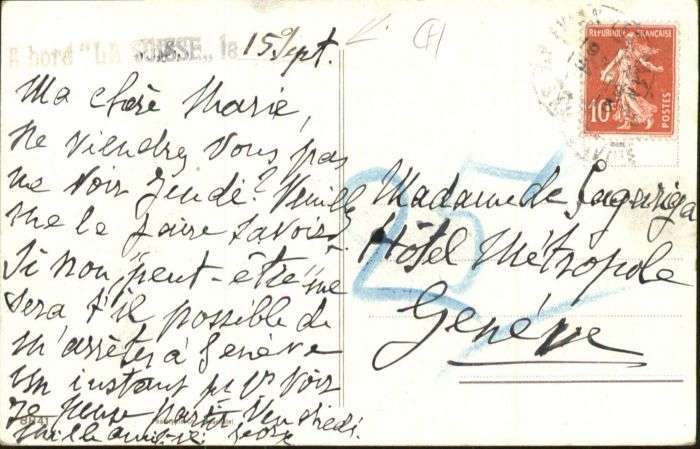 A bord "LA SUISSE", le 15 Sept.
Ma chère Marie,
Ne viendrez vous pas
me voir Jeudi? Veuillez
me le faire savoir.
Si non, peut-être me
sera t'il possible de
m'arrêter à Genève
un instant pr vs voir
Je pense partir Vendredi.
RÉPUBLIQUE FRANÇAISE
10
POSTES
25
Madame de
Hôtel Métropole
Genève